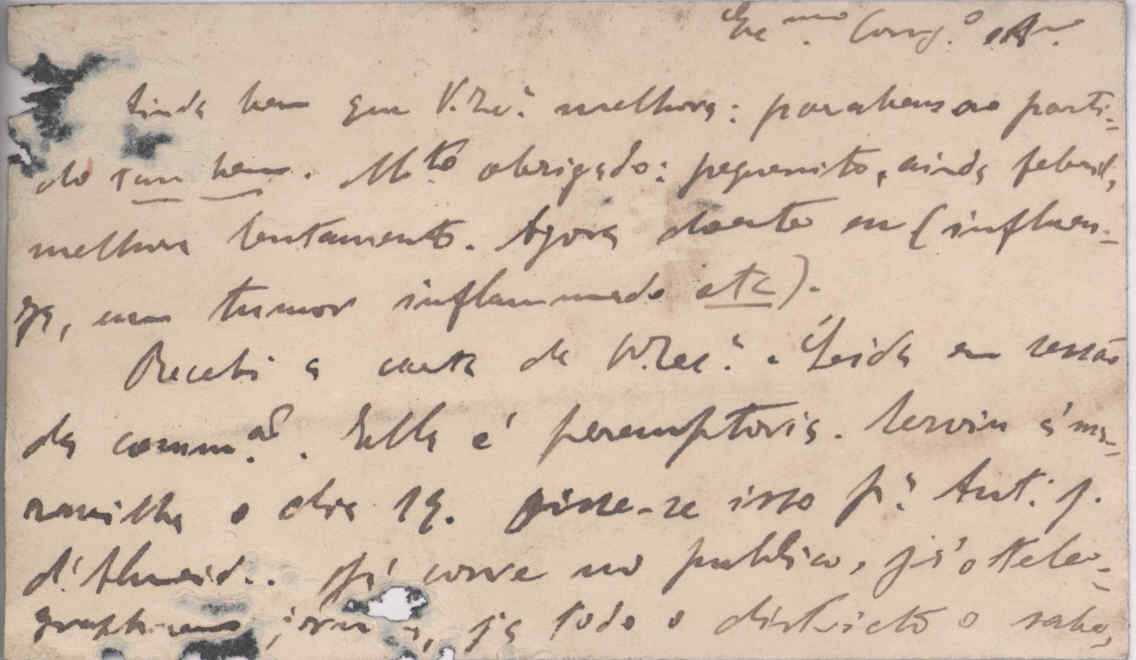 Ex.mo Cons.o e Am.o
Ainda bem que V. Ex.ª melhora: parabens ao parti-
do tambem. M.to obrigado: pequenito, ainda febril,
melhora lentamente. Agora doente eu (influen-
za, um tumor inflammado etc).
Recebi a carta de V. Ex.ª. Lida em sessão
da comm.ão. Ella é peremptoria. Serviu á ma-
ravilha o dia 19. Disse-se isso p.ª Ant.º J.
d'Almeid.. Já corre no publico, já o tele-
grapharam jorn s, já todo o districto o sabe,